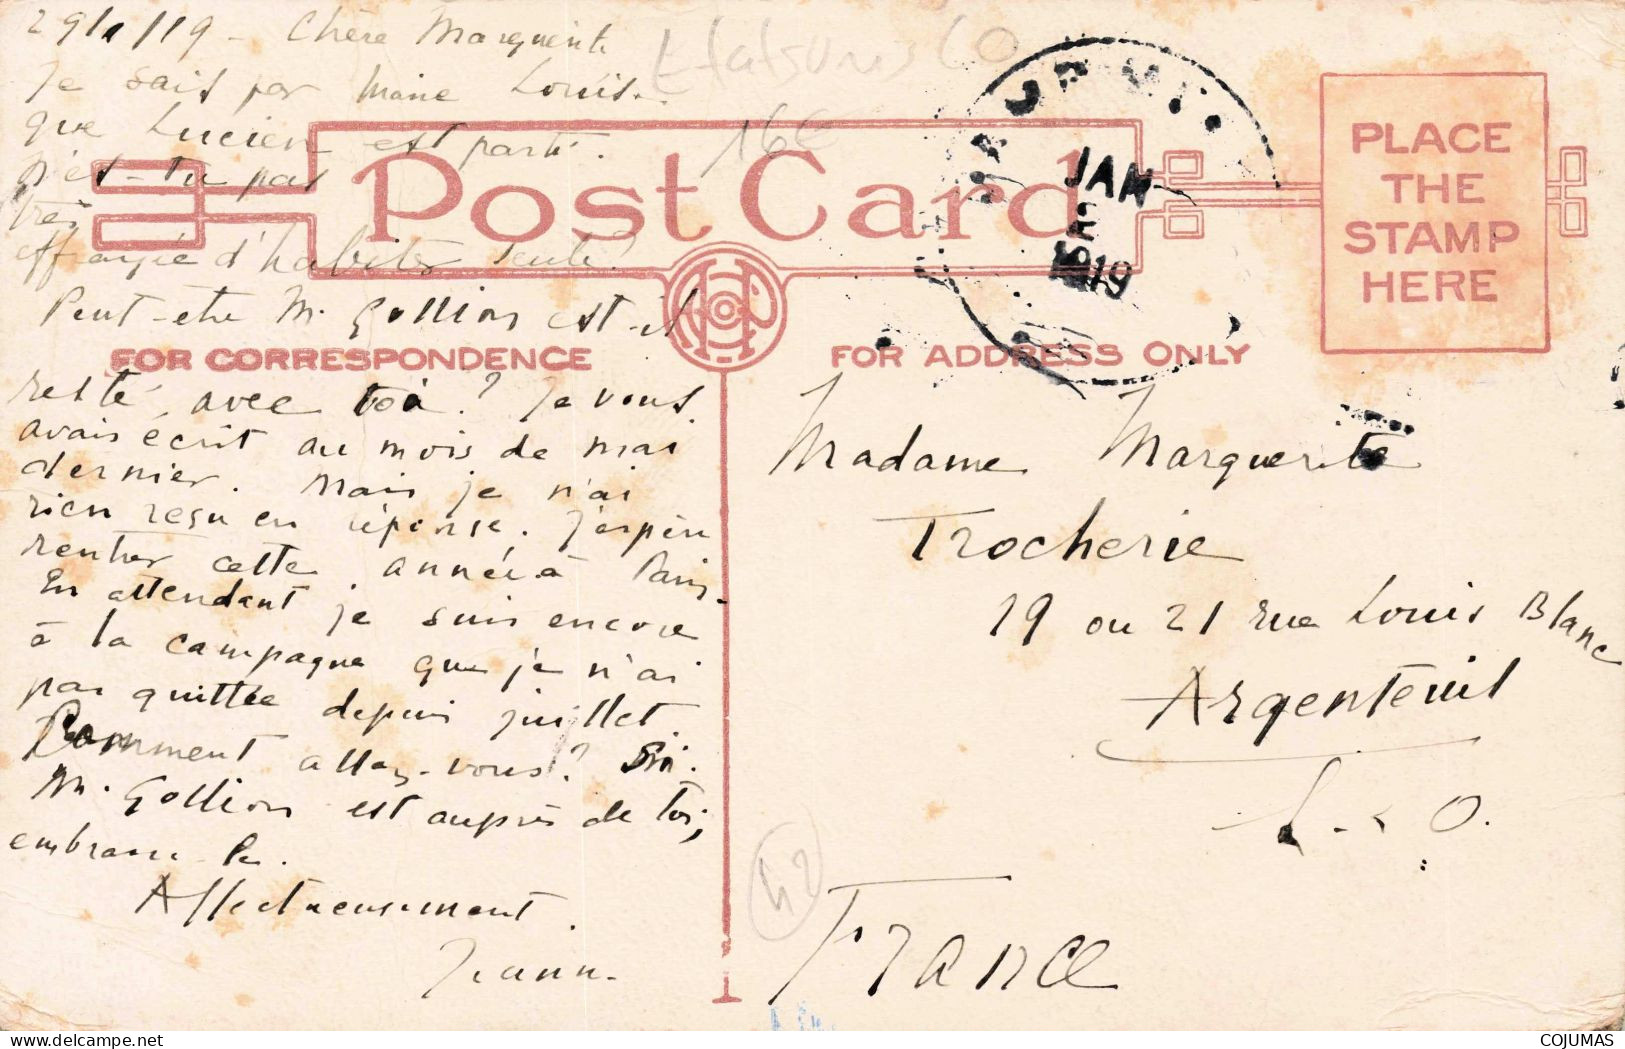 29/1/19 - Chère Marguerite
Je sais par Marie Louis..
que Lucien est parti.
n'es-tu pas
très
effrayée d'habiter seule?
Peut-etre M. Gollion est-il
resté avec toi? Je vous
avais écrit au mois de mai
dernier. Mais je n'ai
rien reçu en réponse. J'espère
rentrer cette année à Paris.
En attendant je suis encore
à la campagne que je n'ai
pas quittée depuis juillet
Comment allez-vous? Si
M. Gollion est auprès de toi,
embrasse-le.
Affectueusement.
16€
Post Card
PLACE
THE
STAMP
HERE
JAN
1919
FOR CORRESPONDENCE
FOR ADDRESS ONLY
Madame Marguerite
Trocherie
19 ou 21 rue Louis Blanc
Argenteuil
S. & O.
France
42
COJUMAS